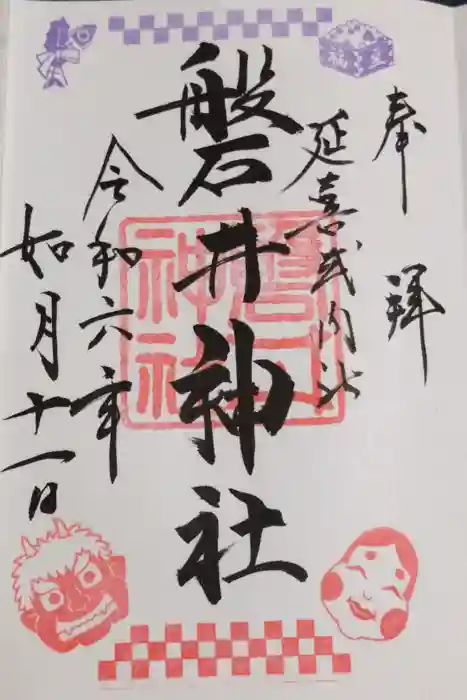 奉拝
延喜式内社
磐井神社
令和六年
如月十一日
磐井
神社
福豆